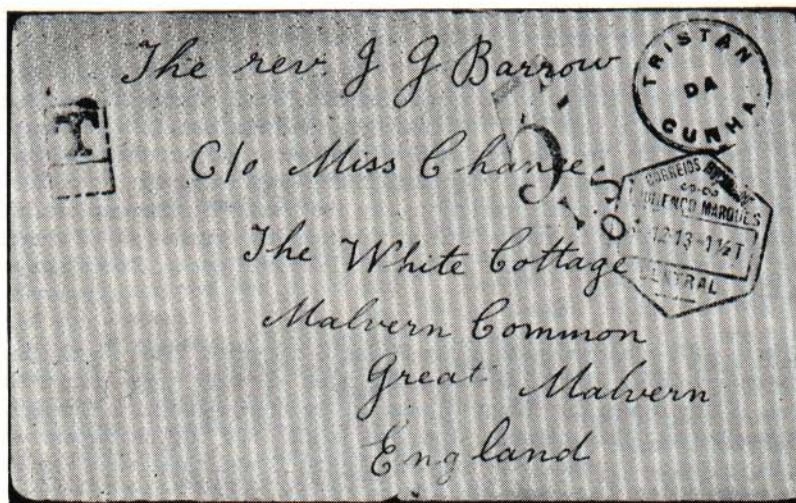 The rev. J J Barrow
C/o Miss Chance
The White Cottage
Malvern Common
Great Malvern
England
TRISTAN
DA
CUNHA
T
CORREIOS
LOURENÇO MARQUES
12-13-1½T
CENTRAL